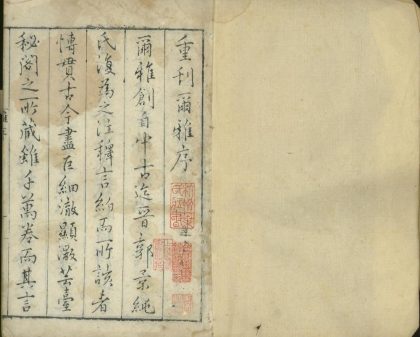 重刊爾雅序
爾雅創自中古迄晉郭景純
氏復為之注釋言約而所該者
溥貫古今盡巨細澈顯微芸臺
秘閣之所藏雖千萬卷而其言